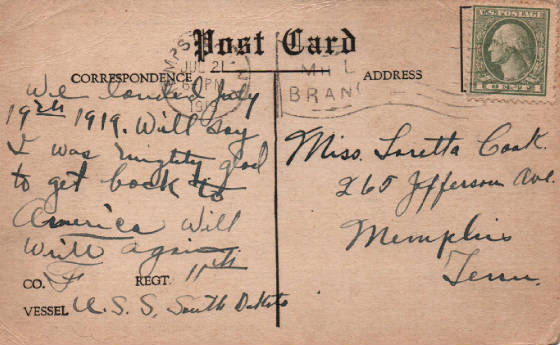 Post Card
CORRESPONDENCE
ADDRESS
U.S. POSTAGE
1 CENT 1
JUL 21
PM
19
BRANC
We landed July
19th 1919. Will say
I was mighty glad
to get back to
America Will
Write again.
CO. F REGT. 11th
VESSEL U. S. S. South Dakota
Miss. Loretta Cook.
265 Jefferson Ave.
Memphis
Tenn.